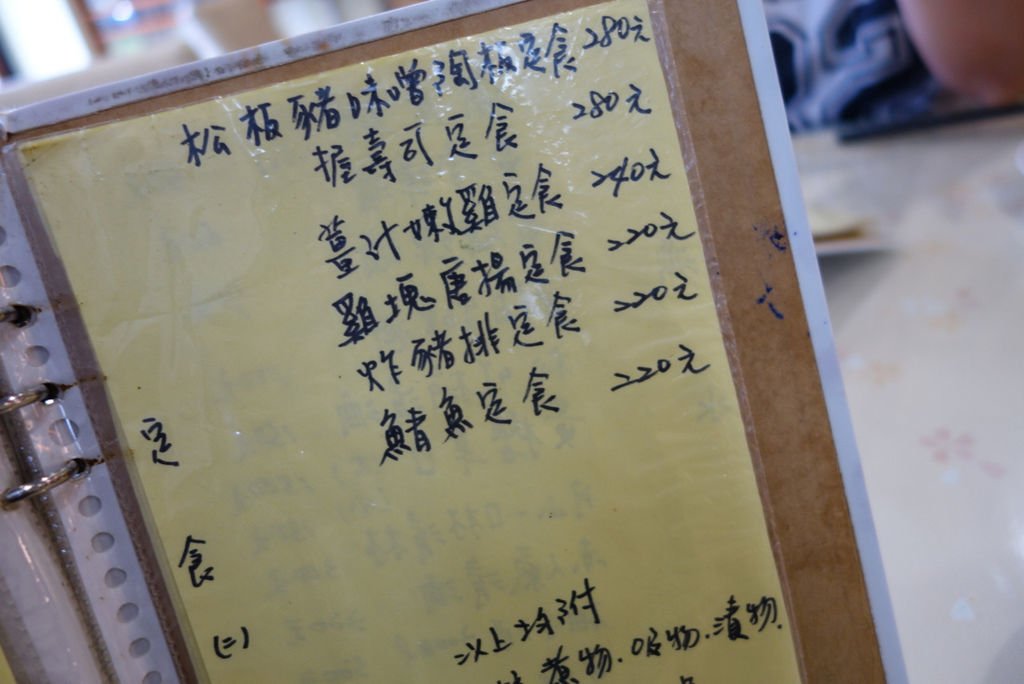 松板豬味噌陶板定食 280元
握壽司定食 280元
薑汁嫩雞定食 240元
雞塊唐揚定食 220元
炸豬排定食 220元
鯖魚定食 220元
定
食
(二)
以上均附
煮物.吸物.漬物.